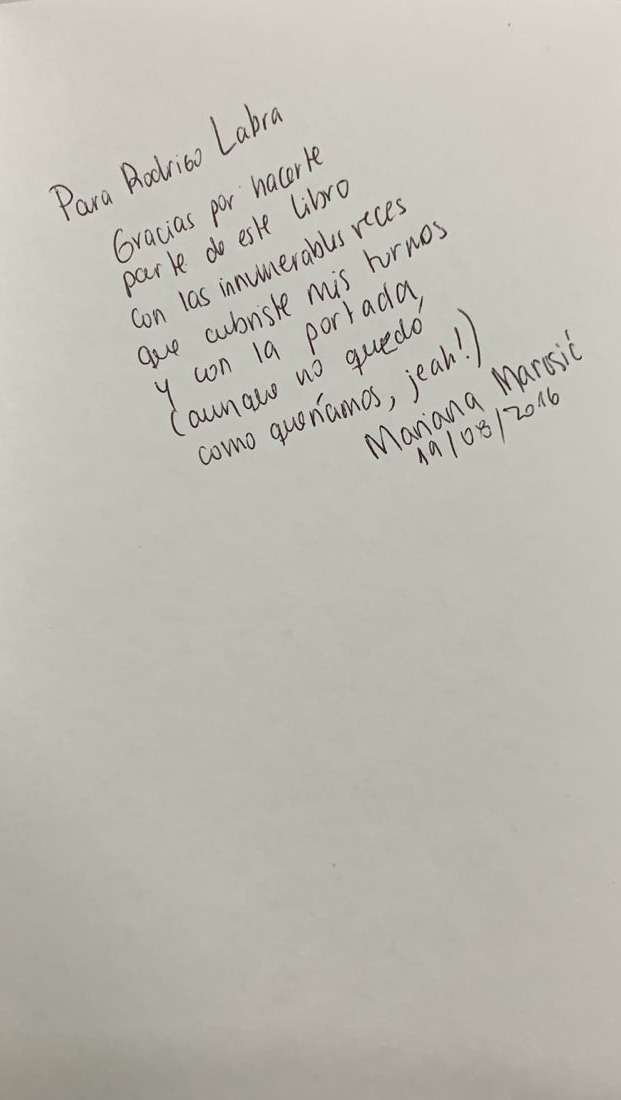 Para Rodrigo Labra
Gracias por hacerte
parte de este libro
con las innumerables veces
que cubriste mis turnos
y con la portada,
(aunque no quedó
como queríamos, jeah!)
Mariana Marosić
19/08/2016